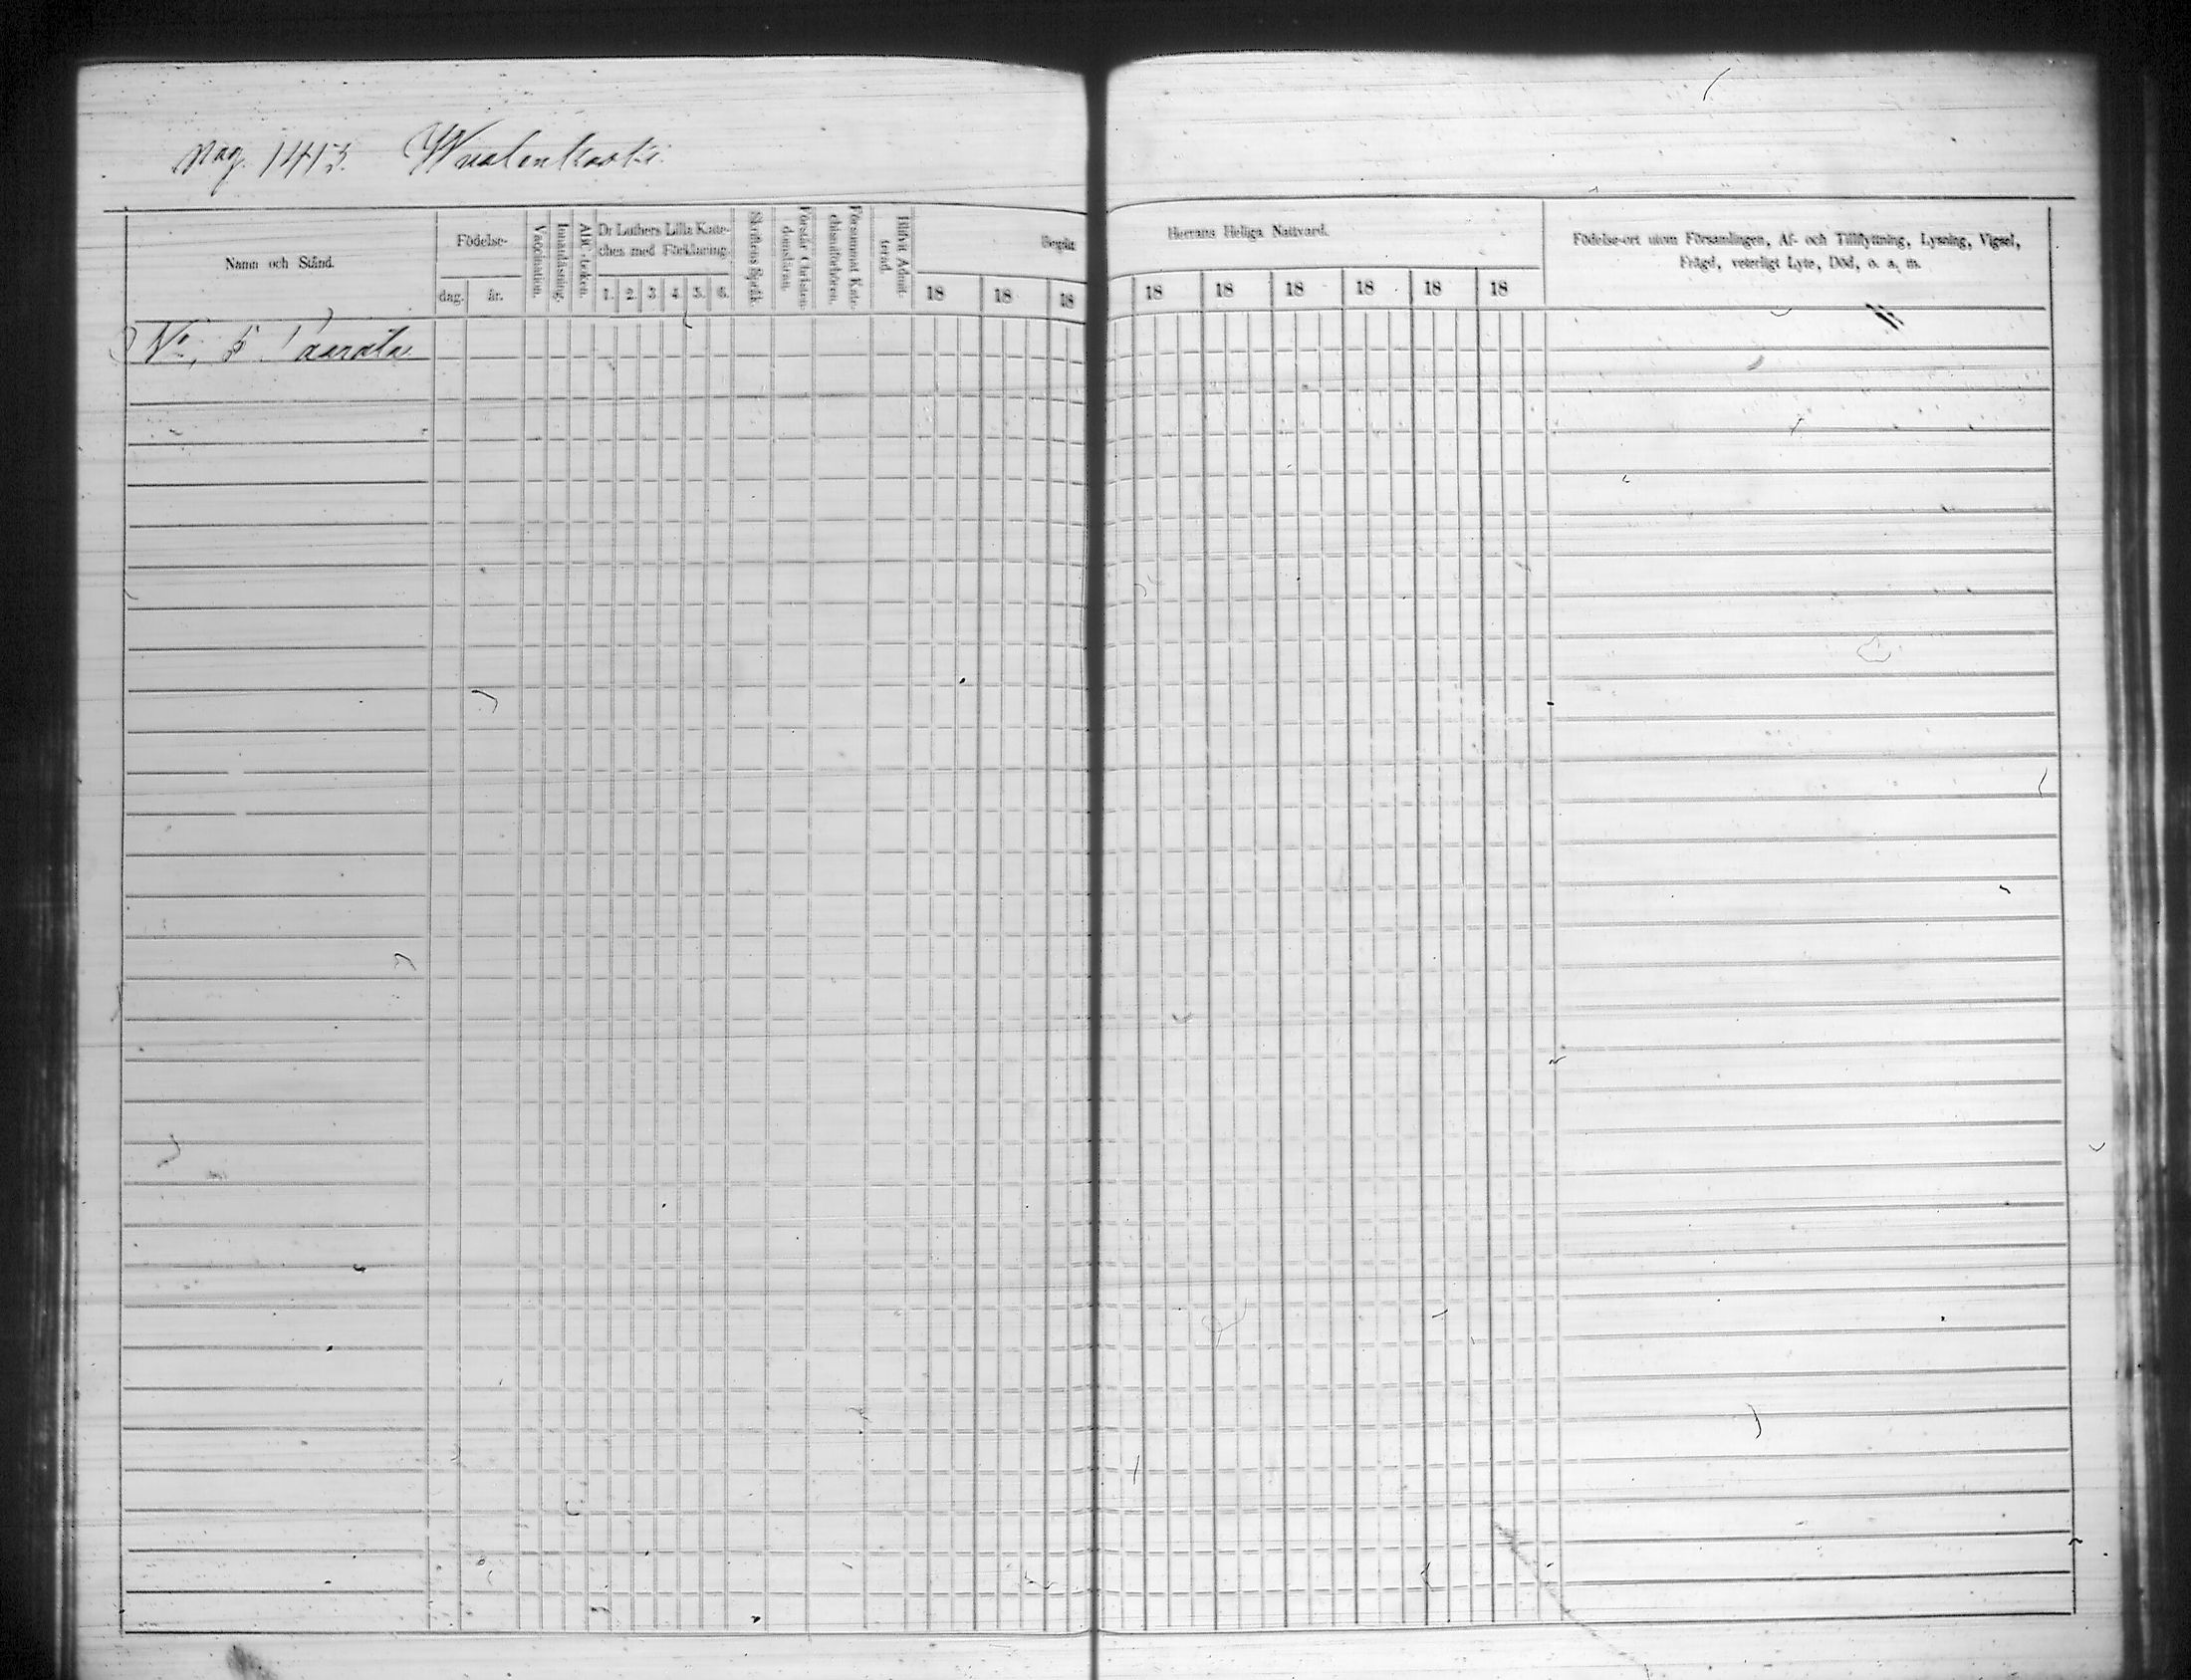 Pag. 1413. Wuolenkoski.
Namn och Stånd.
Födelse-
dag.
år.
Vaccination.
Innanläsning.
ABC-boken.
Dr Luthers Lilla Kate-
ches med Förklaring.
1. 2. 3. 4. 5. 6.
Skriftens Språk.
Förstår Christen-
domsläran.
Försummat Kate-
chismiförhören.
Blifvit Admit-
terad.
Begått
Herrans Heliga Nattvard.
18 18 18 18 18 18 18 18 18
Födelse-ort utom Församlingen, Af- och Tillflyttning, Lysning, Vigsel,
Frägd, veterligt Lyte, Död, o. a. m.
No. 5